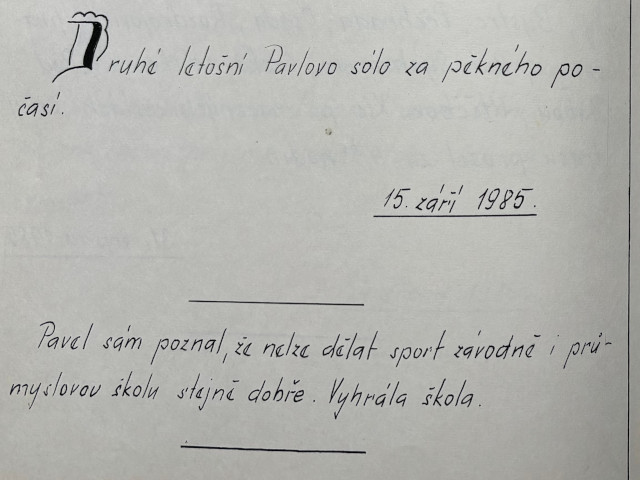 Druhé letošní Pavlovo sólo za pěkného po-
časí.
15. září 1985.
Pavel sám poznal, že nelze dělat sport závodně i prů-
myslovou školu stejně dobře. Vyhrála škola.